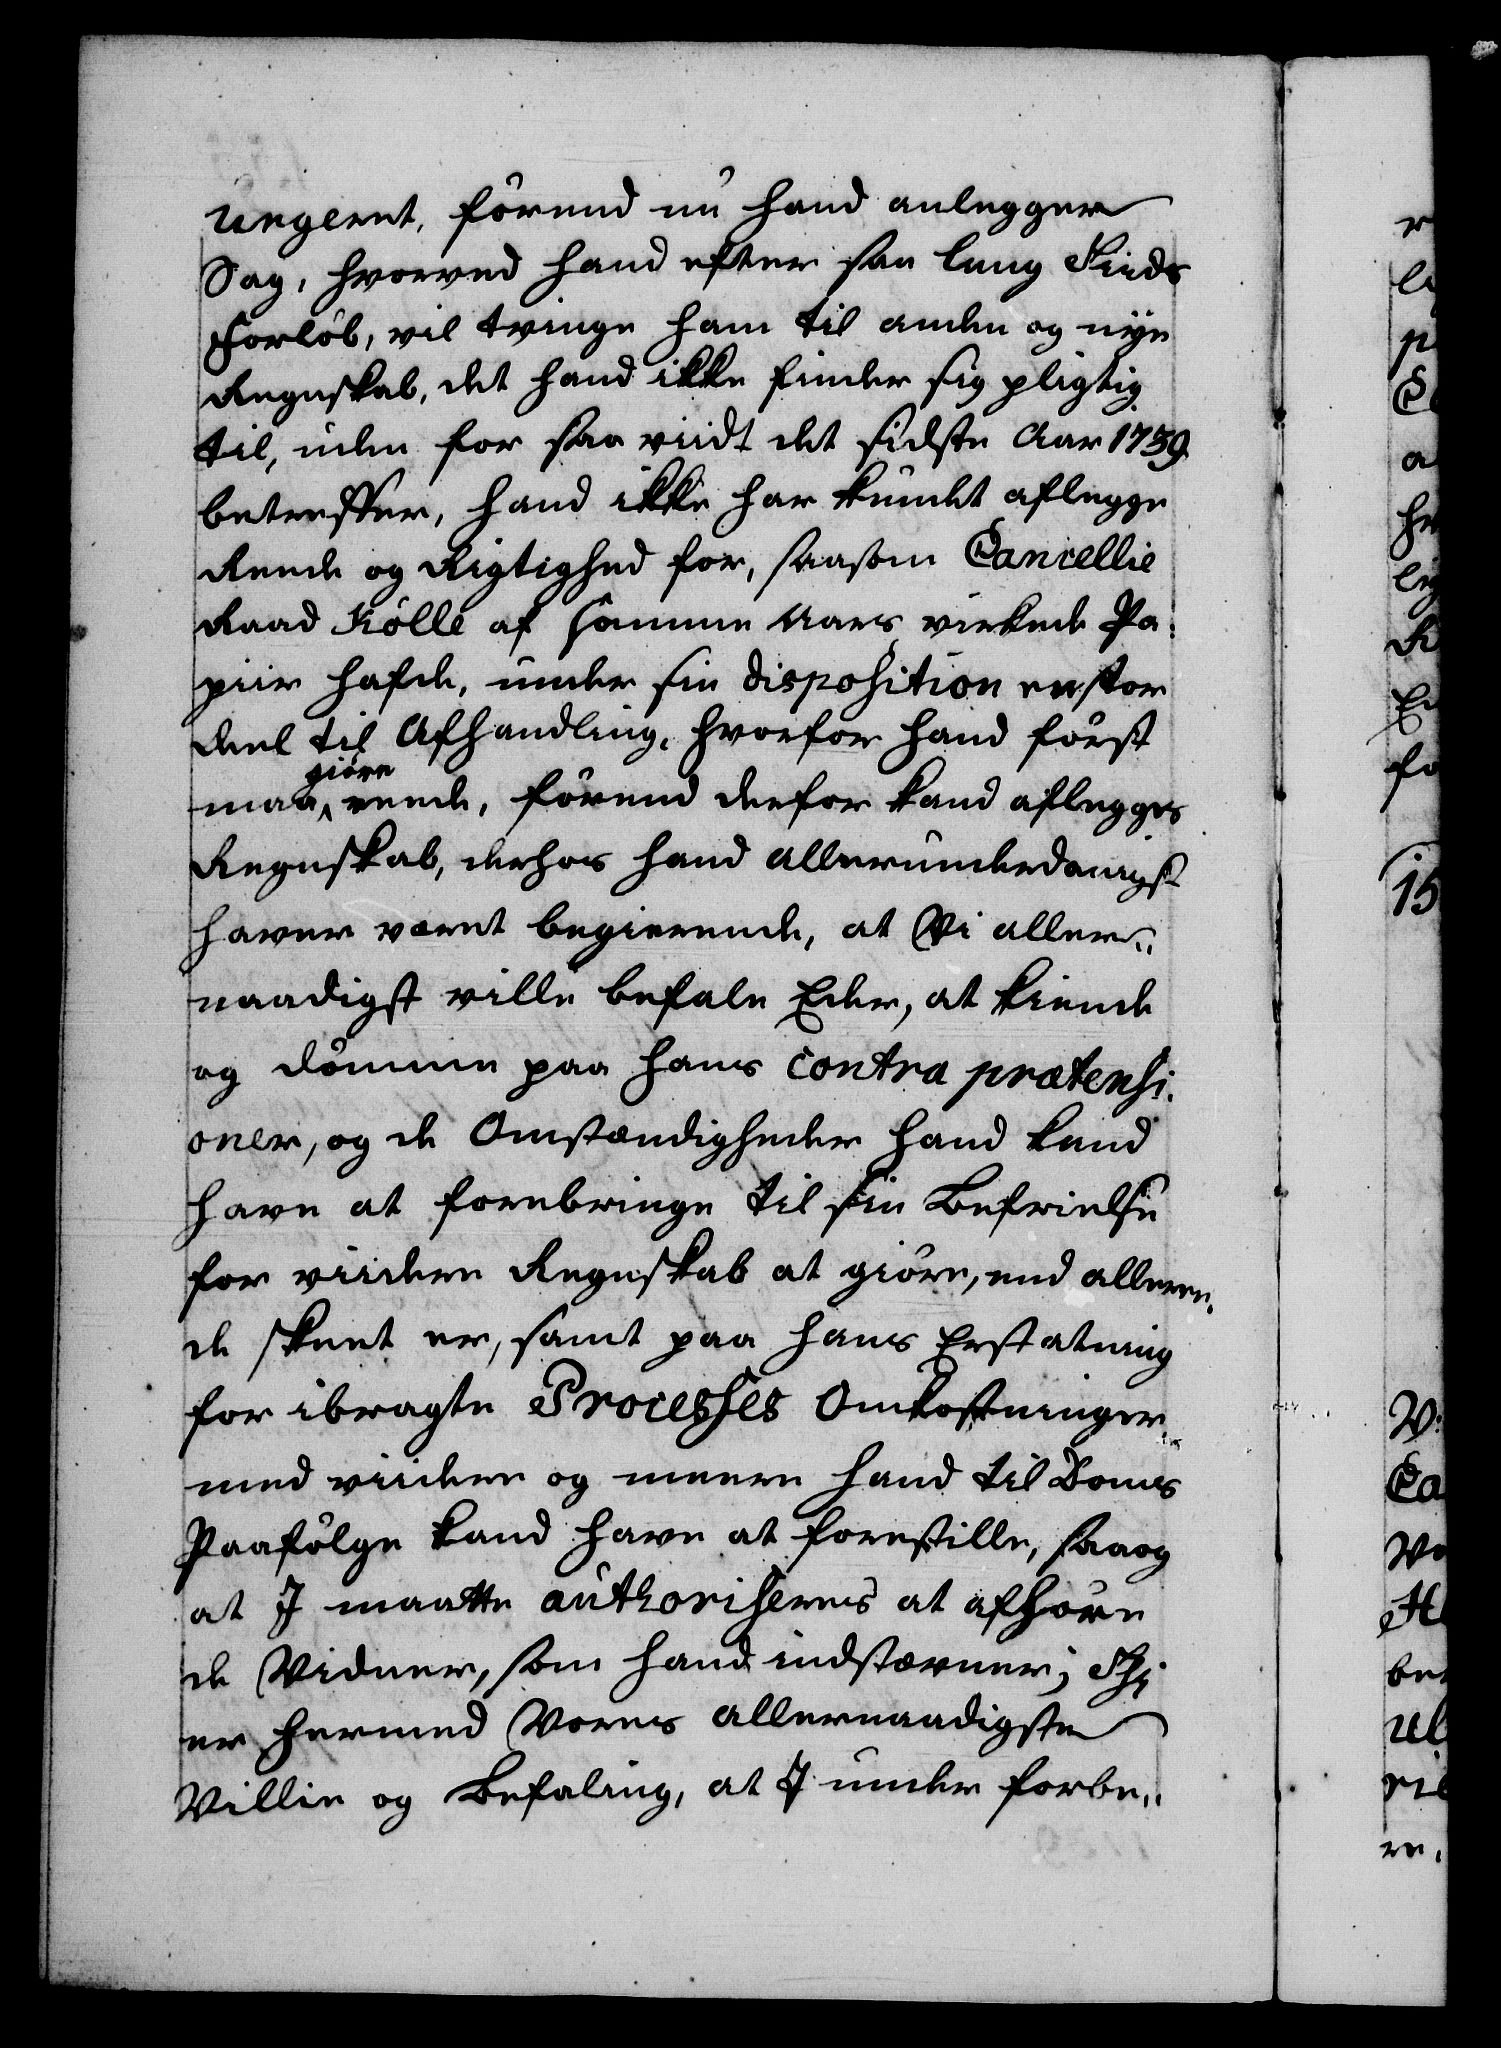 Urgeret, förend nu hand anlegger
Sag, hvorved hand efter saa lang Tiids
Forlöb, vil tvinge ham til anden og nÿe
Regnskab, det hand ikke finder sig pligtig
til, uden for saa viidt det sidste Aar 1759
betreffer, hand ikke har kundet aflegge
Reede og Rigtighed for, saasom Cancellie
Raad Kölle af samme Aars virkede Pa:
piir hafde, under sin disposition en stor
deel til Afhandling, hvorfor hand först
maa giöre reede, förend derfor kand aflegges
Regnskab, derhos hand allerunderdanigst
haver været begierende, at Vi aller„
naadigst ville befale Eder, at kiende
og dömme paa hans Contra prætensi.
oner, og de Omstændigheder hand kand
have at forebringe til sin Befrielse
for viidere Regnskab at giöre, end alleree.
de skeet er, samt paa hans Erstatning
for ibragte Processes Omkostninger
med viidere og meere hand til Doms
Paafölge kand have at forestille, saa og
at I maatte authoriseres at afhöre
de Vidner, som hand indstævner; Thi
er hermed Vores allernaadigste
Villie og Befaling, at I under forbe„